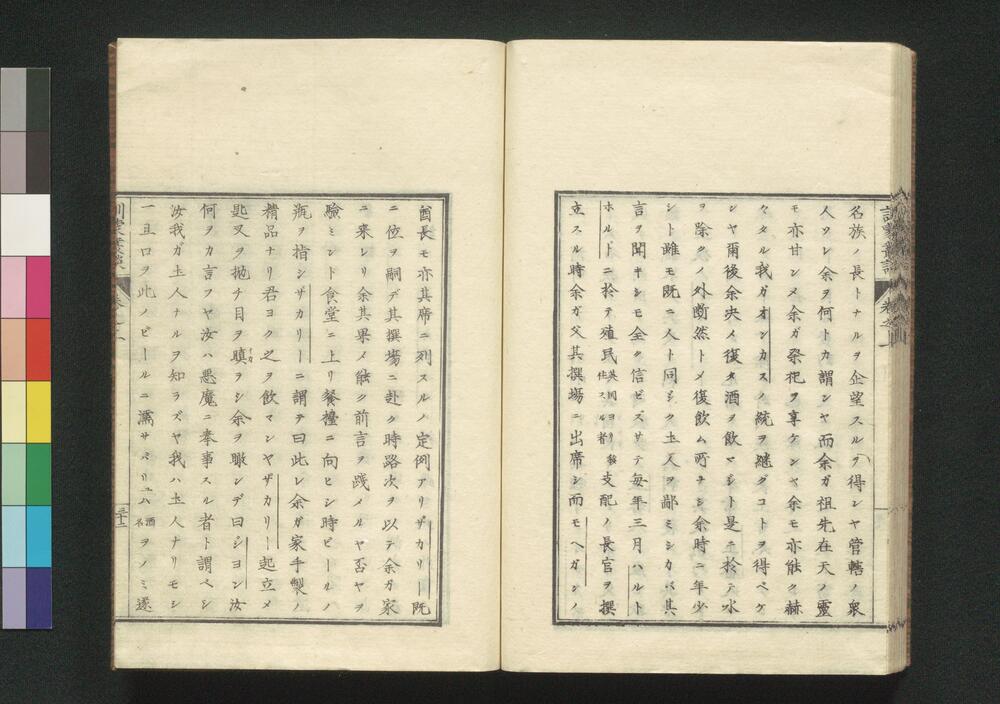 名族ノ長トナルヲ企望スルヲ得ンヤ管轄ノ衆
人ワレ余ヲ何トカ謂ンヤ而余ガ祖先在天ノ靈
モ亦甘ンメ余ガ祭祀ヲ享ケンヤ余モ亦能ク赫
々タル我ガオンカスノ統ヲ継グコトヲ得ベケ
ンヤ爾後余决メ復タ酒ヲ飲マジト是ニ於テ水
ヲ除クノ外断然トメ復飲ム所ナシ余時ニ年少
シト雖モ既ニ人ト同ジク土人ヲ鄙ミシカバ其
言ヲ聞キシモ全ク信ビズサテ毎年三月ハルト
ホルトニ於テ殖民英国ヨリ移住スル者支配ノ長官ヲ撰
立スル時余ガ父其撰場ニ出席シ而モヘガンノ
酋長モ亦其席ニ列スルノ定例アリザカリー既
ニ位ヲ嗣デ其撰場ニ赴ク時路次ヲ以テ余ガ家
ニ来レリ余其果メ能ク前言ヲ践メルヤ否ヤヲ
驗ミント食堂ニ上リ餐檯ニ向ヒシ時ビールノ
瓶ヲ指シザカリーニ謂テ曰此レ余ガ家手製ノ
精品ナリ君ヨク之ヲ飲マンヤザカリー起立メ
匙叉ヲ抛チ目ヲ瞋ラシ余ヲ瞰ンデ曰ジヨン汝
何ヲカ言フヤ汝ハ悪魔ニ奉事スル者ト謂ベシ
汝我ガ土人ナルヲ知ラズヤ我ハ土人ナリモシ
一且口ヲ此ノビールニ濡サバリユハ酒名ヲノミ遂
卷之一
三十二